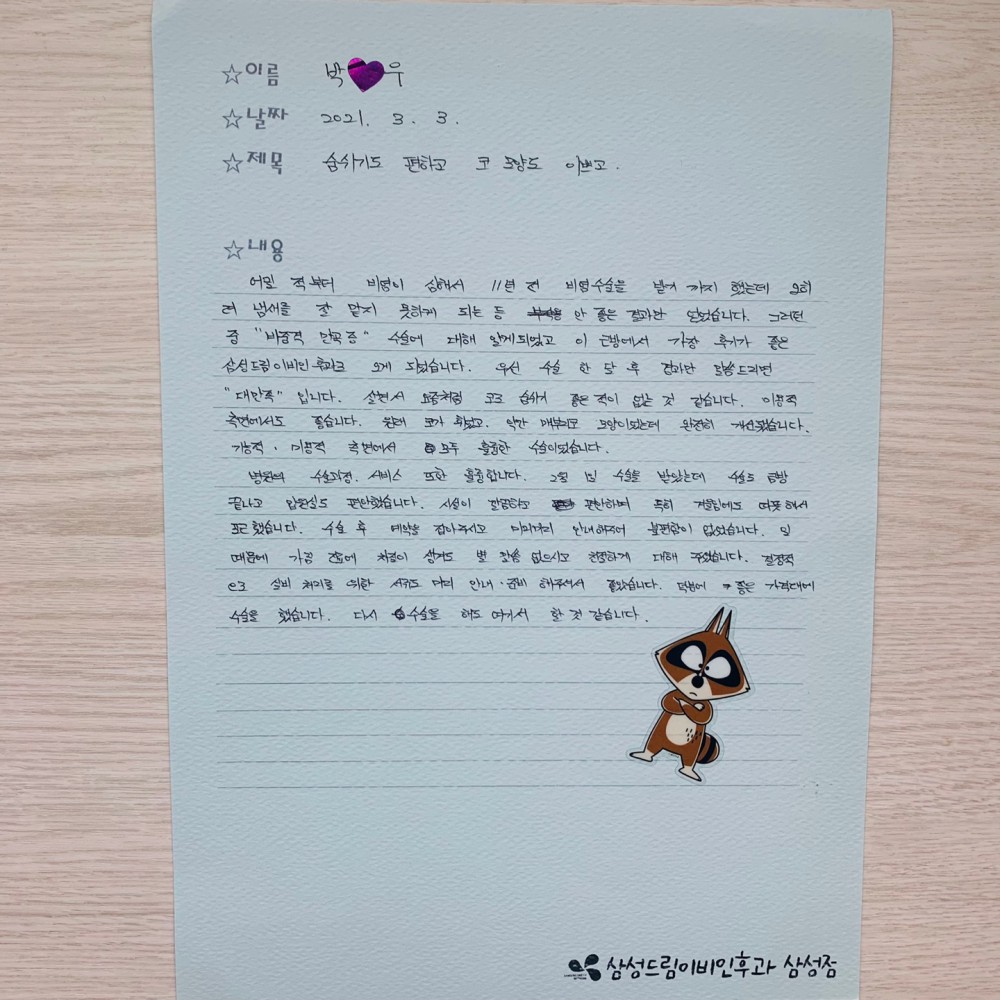 ☆이름 박 우
☆날짜 2021. 3. 3.
☆제목 숨쉬기도 편하고 코 모양도 이쁘고.
☆내용
어릴 적부터 비염이 심해서 11년 전 비염수술을 받기 까지 했는데 오히
려 냄새를 잘 맡지 못하게 되는 등 안 좋은 결과만 얻었습니다. 그러던
중 "비중격 만곡증" 수술에 대해 알게되었고 이 근방에서 가장 후기가 좋은
삼성드림이비인후과로 오게 되었습니다. 우선 수술 한 달 후 결과만 말씀드리면
"대만족" 입니다. 살면서 요즘처럼 코로 숨쉬기 좋은 적이 없는 것 같습니다. 미용적
측면에서도 좋습니다. 원래 코가 휘었고. 약간 매부리코 모양이었는데 완전히 개선됐습니다.
기능적·미용적 측면에서 모두 훌륭한 수술이었습니다.
병원의 수술과정. 서비스 또한 훌륭합니다. 2월 1일 수술을 받았는데 수술도 금방
끝나고 입원실도 편안했습니다. 시설이 깔끔하고 편안하며 특히 겨울임에도 따뜻해서
포근했습니다. 수술 후 예약을 잡아주시고 미리미리 안내해주어 불편함이 없었습니다. 일
때문에 가끔 진료에 차질이 생겨도 별 말씀 없으시고 친절하게 대해 주셨습니다. 결정적
으로 실비 처리를 위한 서류도 미리 안내·준비 해주셔서 좋았습니다. 덕분에 좋은 가격대에
수술을 했습니다. 다시 수술을 해도 여기서 할 것 같습니다.
삼성드림이비인후과 삼성점